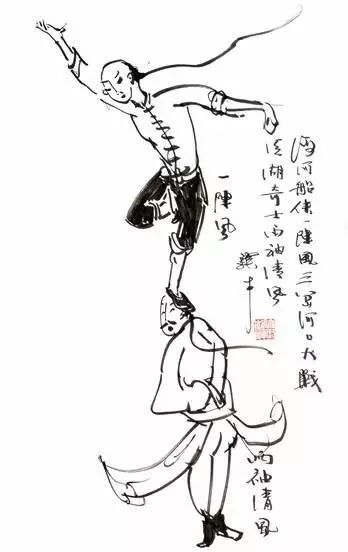 海河船侠一陣風三岔河口大戰
江湖奇士两袖清風
一陣風
两袖清風